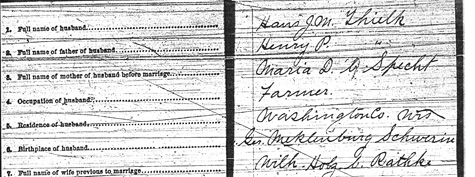 1. Full name of husband Hans J.M. Thielk
2. Full name of father of husband Henry P. "
3. Full name of mother of husband before marriage Maria D. G. Specht
4. Occupation of husband Farmer.
5. Residence of husband Washington Co. Wis
6. Birthplace of husband Ger. Meklenburg Schwerin
7. Full name of wife previous to marriage Wilh. Holz b. Rathke